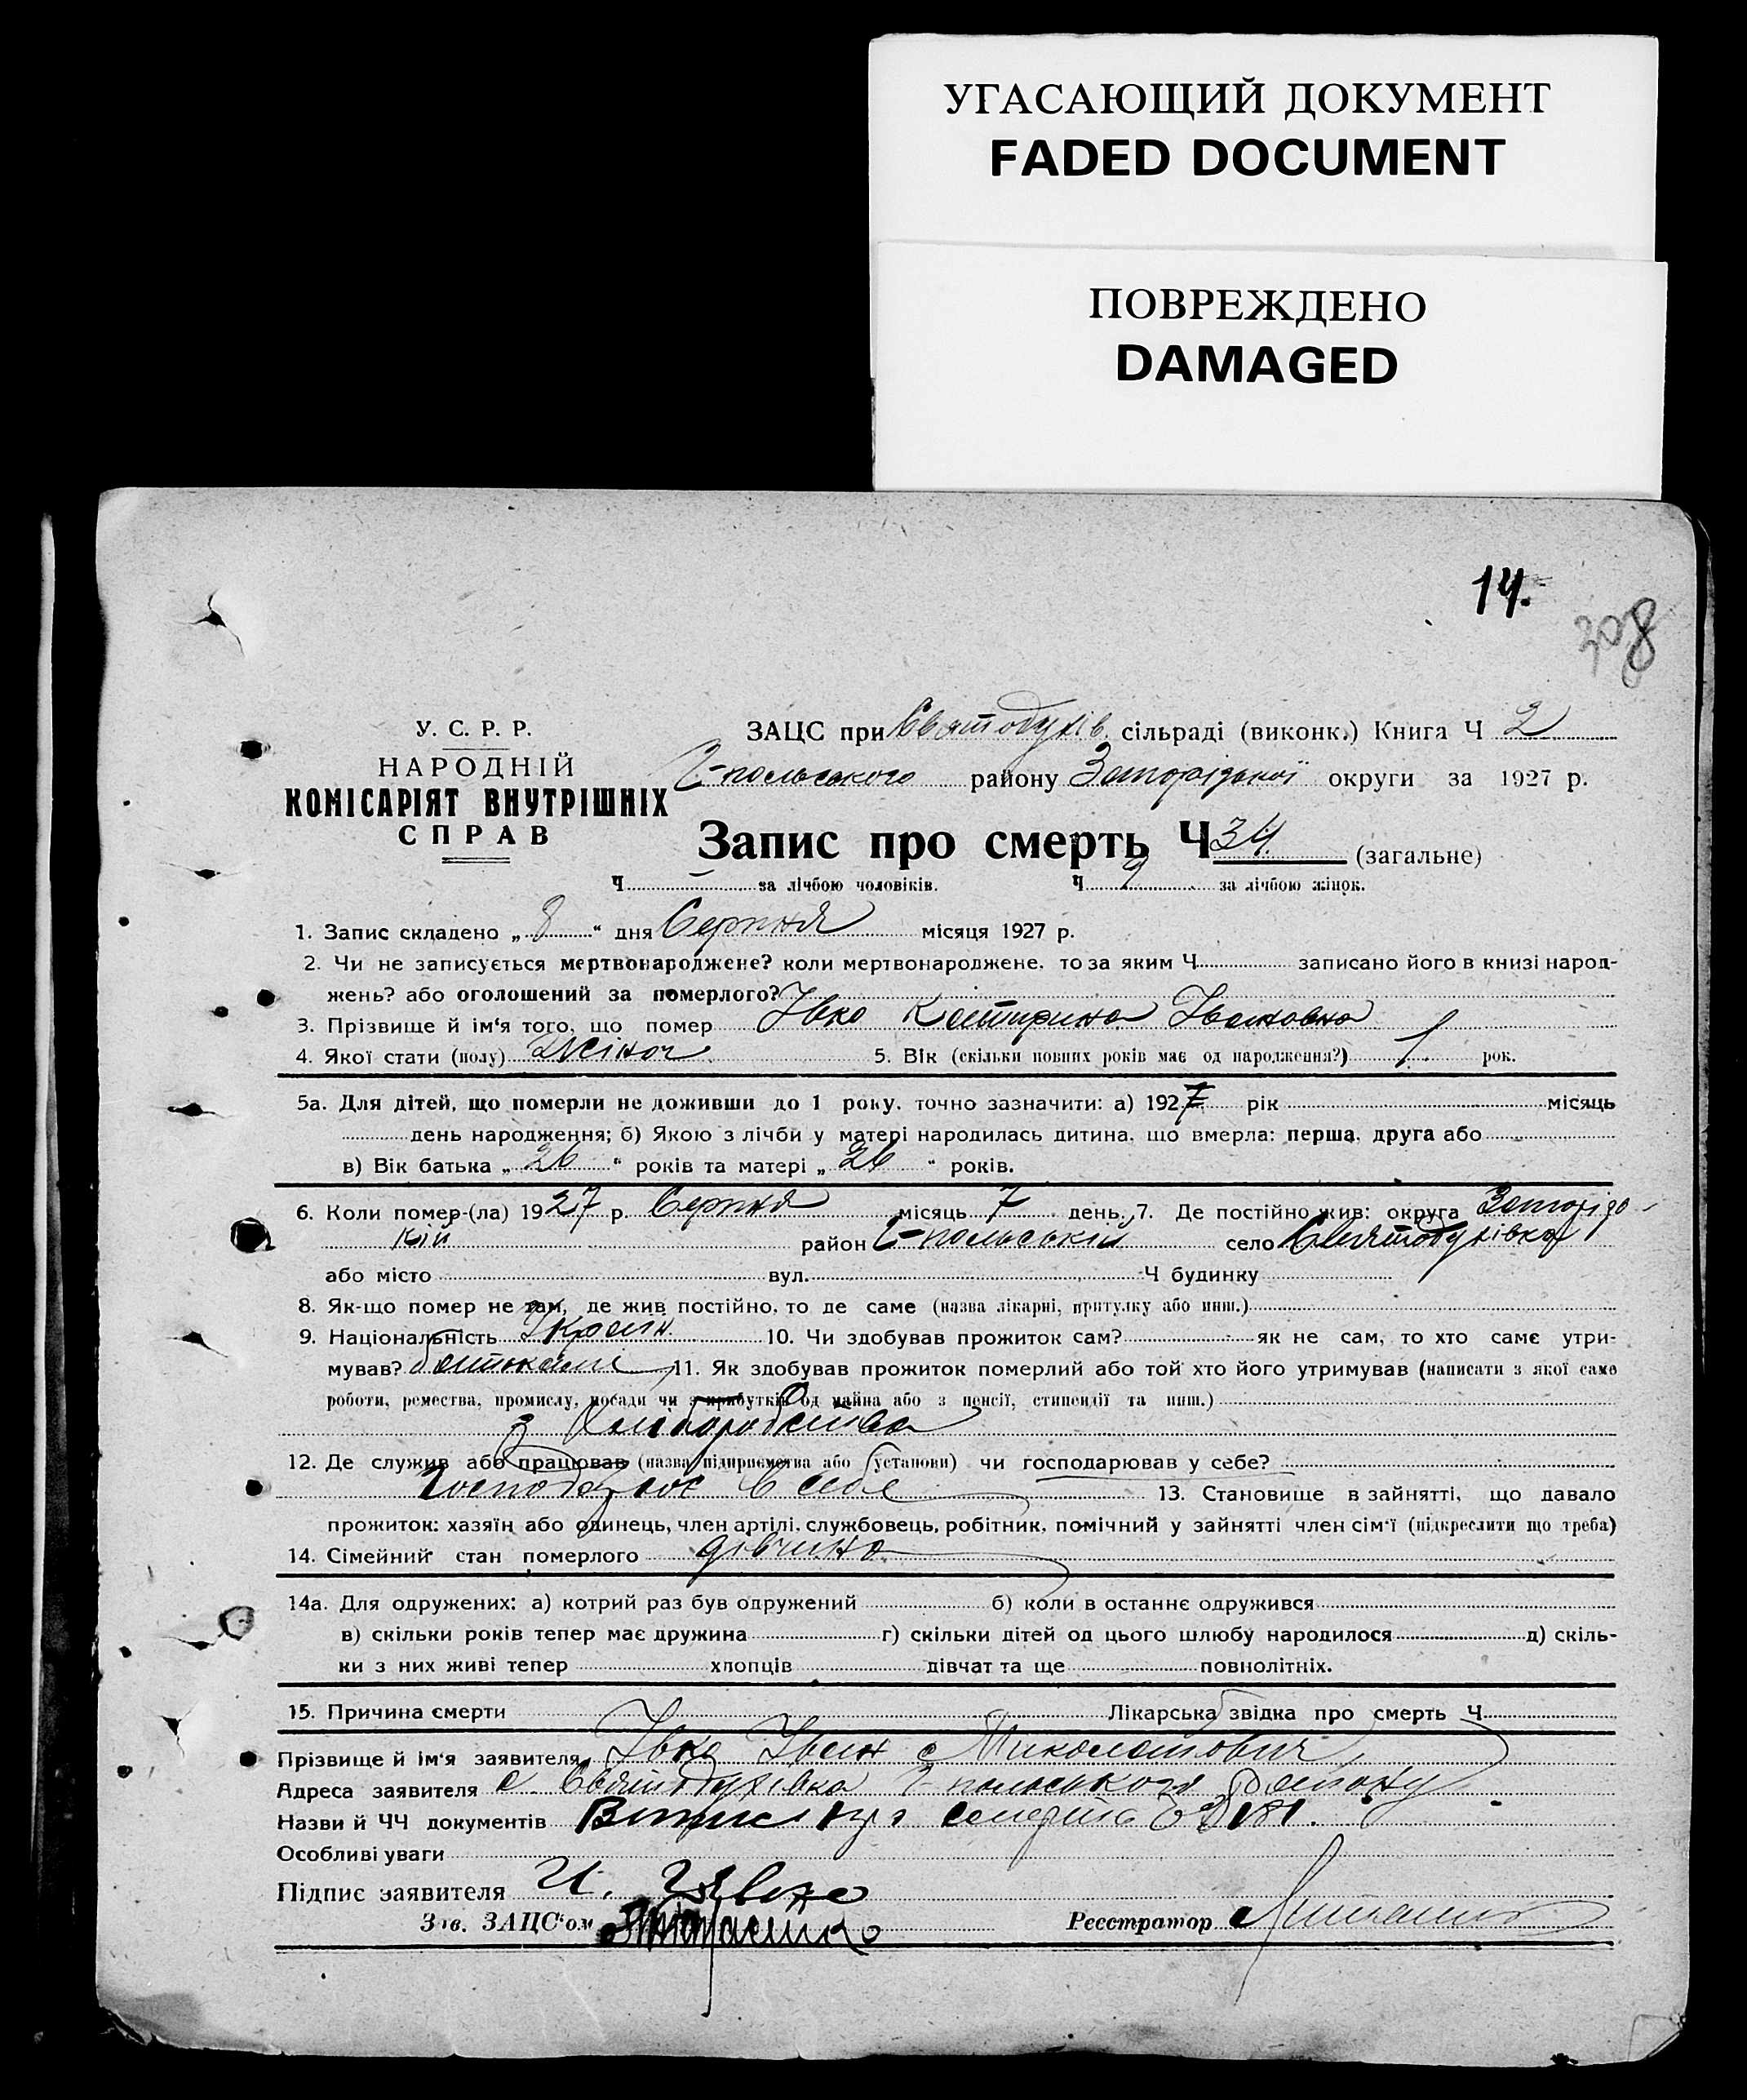 УГАСАЮЩИЙ ДОКУМЕНТ
FADED DOCUMENT
ПОВРЕЖДЕНО
DAMAGED
14.
308
У. С. Р. Р.
НАРОДНІЙ
КОМІСАРІЯТ ВНУТРІШНІХ
СПРАВ
ЗАЦС при Святодухів. сільраді (виконк.) Книга Ч 2
-польського району Запорізької округи за 1927 р.
Запис про смерть Ч 34. (загальне)
Ч. – за лічбою чоловіків. Ч. 9 за лічбою жінок.
1. Запис складено „ 8 “ дня Серпня місяця 1927 р.
2. Чи не записується мертвонароджене? коли мертвонароджене, то за яким Ч. записано його в книзі народ-
жень? або оголошений за померлого?
3. Прізвище й ім‘я того, що помер Івко Катирина Івановна
4. Якої стати (полу) Жіноч. 5. Вік (скільки повних років має од народження?) 1 рок.
5а. Для дітей, що померли не доживши до 1 року, точно зазначити: а) 1927 рік місяць
день народження; б) Якою з лічби у матері народилась дитина, що вмерла: перша, друга або
в) Вік батька „ 26 “ років та матері „ 26 “ років.
6. Коли помер-(ла) 1927 р. Серпня місяць 7 день. 7. Де постійно жив: округа Запорізь-
кій район -польській село Святодухівка
або місто вул. Ч будинку
8. Як-що помер не там, де жив постійно, то де саме (назва лікарні, притулку або инш.)
9. Національність Україн. 10. Чи здобував прожиток сам? як не сам, то хто саме утри-
мував? батьками 11. Як здобував прожиток померлий або той хто його утримував (написати з якої саме
роботи, ремества, промислу, посади чи з прибутків од майна або з пенсії, стипендії та инш.)
з Хліборобства
12. Де служив або працював (назва підприємства або установи) чи господарював у себе?
Господарює в себе 13. Становище в зайнятті, що давало
прожиток: хазяїн або одинець, член артілі, службовець, робітник, помічний у зайнятті член сім‘ї (підкреслити що треба)
14. Сімейний стан померлого дівчина
14а. Для одружених: а) котрий раз був одружений б) коли в останнє одружився
в) скільки років тепер має дружина г) скільки дітей од цього шлюбу народилося д) скіль-
ки з них живі тепер хлопців дівчат та ще повнолітніх.
15. Причина смерти Лікарська звідка про смерть Ч.
Прізвище й ім‘я заявителя Івко Іван Миколайович
Адреса заявителя с. Святодухівка -польського району
Назви й ЧЧ документів Випис про смерть 181.
Особливі уваги
Підпис заявителя И. Ивко
Зав. ЗАЦС‘ом Реєстратор